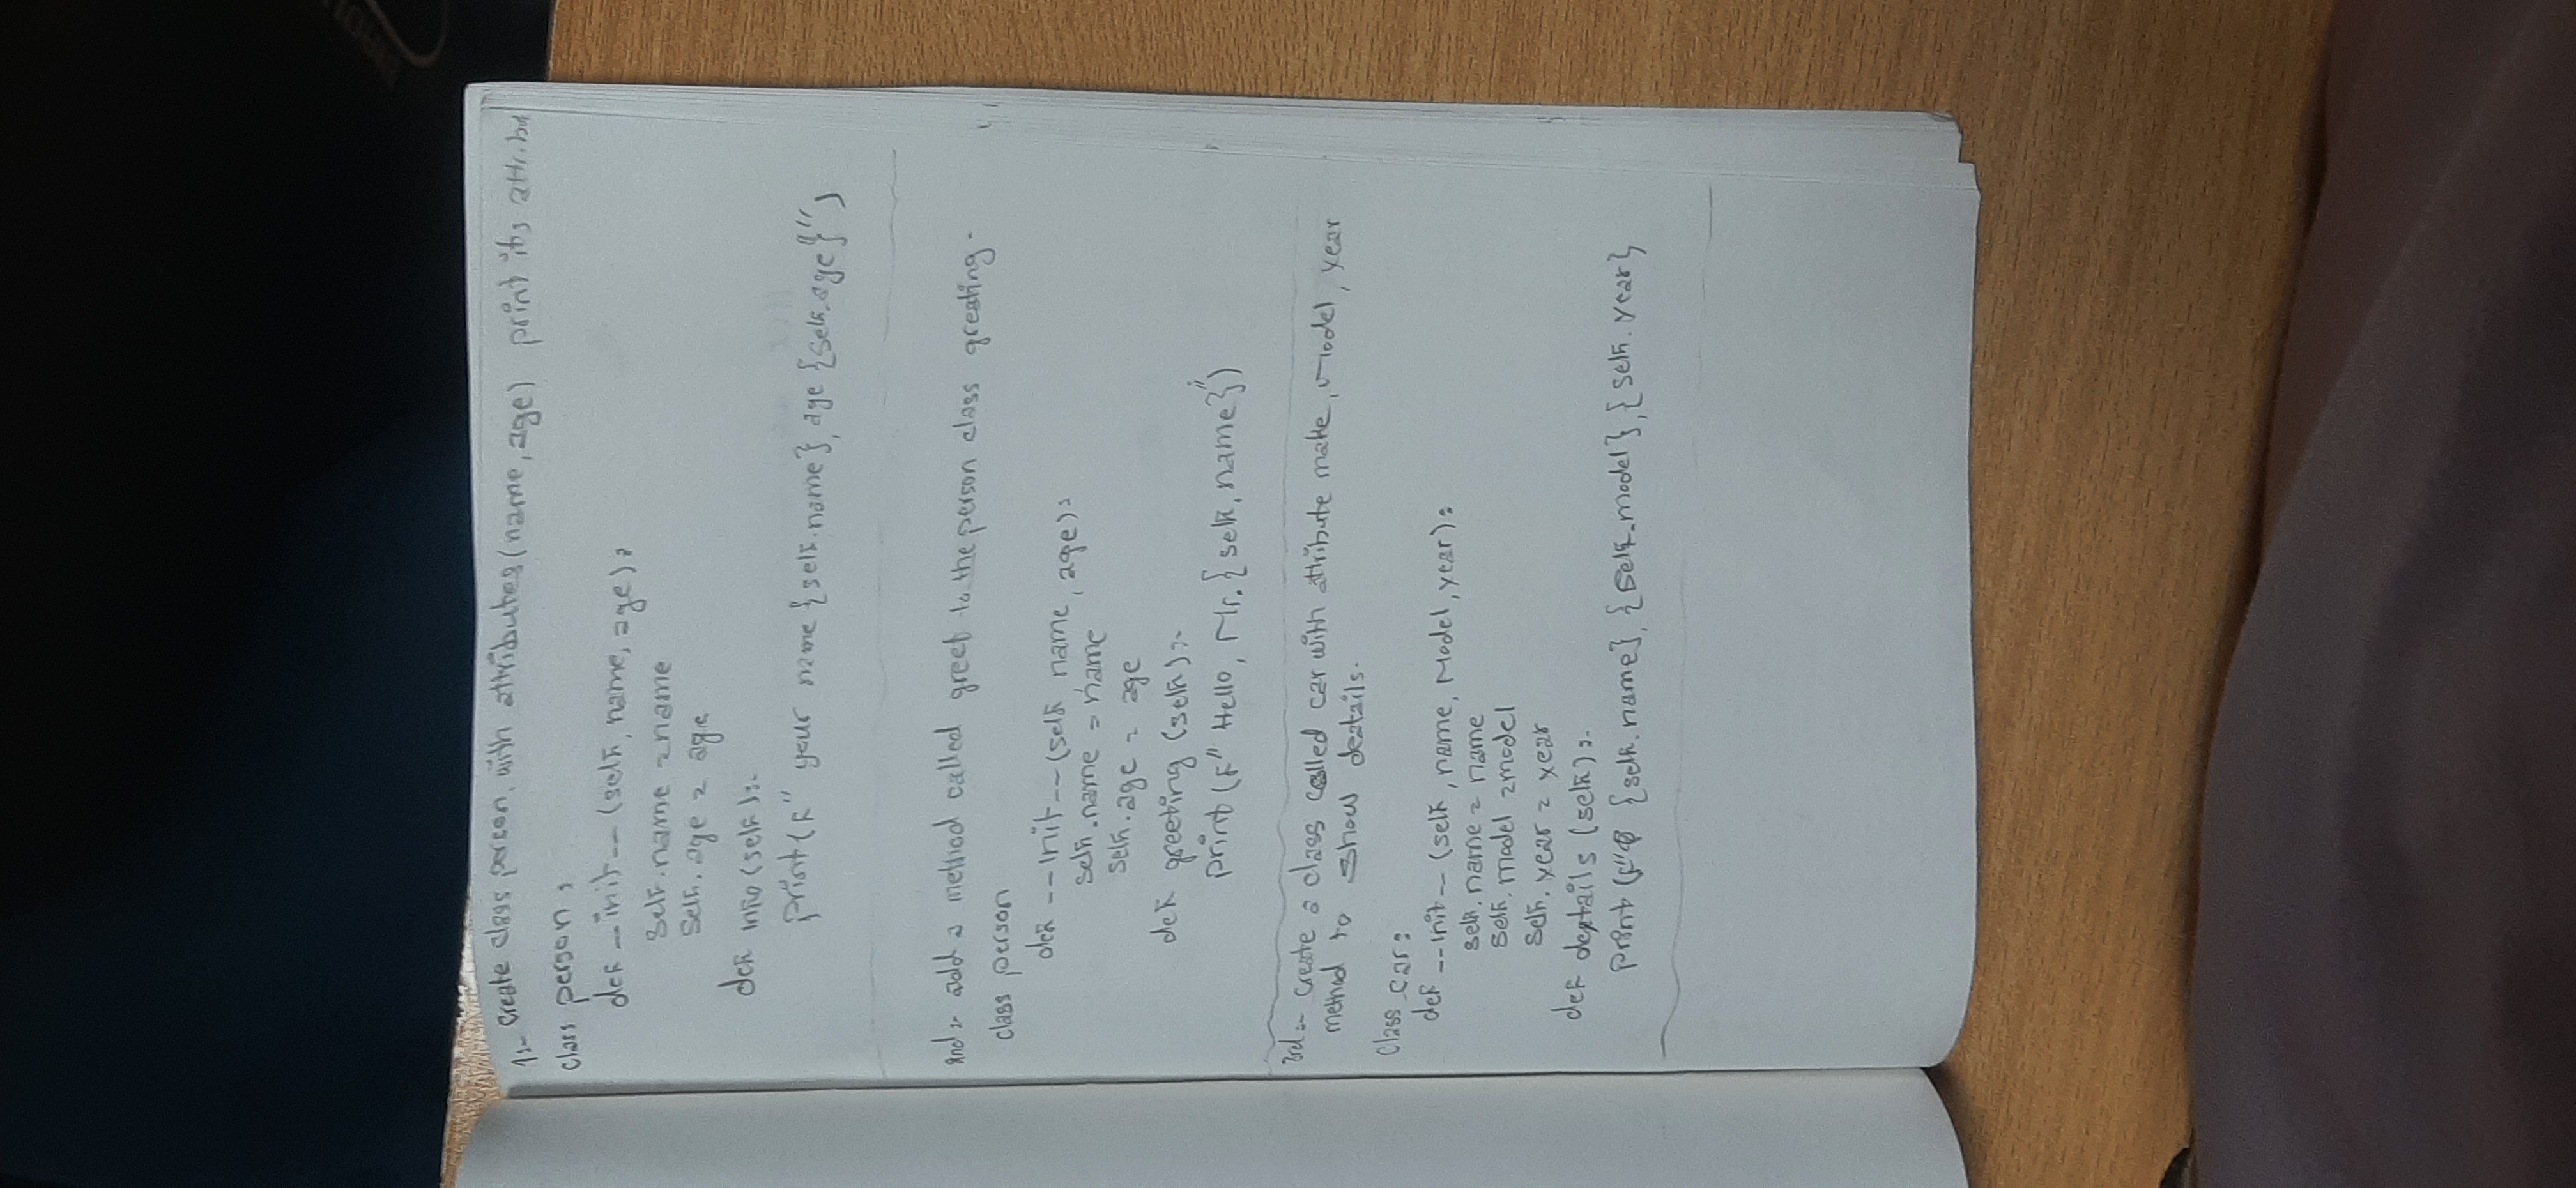 1:- Create class person, with attributes (name, age) print its attribu
class person :
def __init__ (self, name, age) :
self.name = name
self.age = age
def info (self) :-
print(f" your name {self.name}, age {self.age}")
2nd :- add a method called greet to the person class greating.
class person
def __init__ (self, name, age) :
self.name = name
self.age = age
def greeting (self) :-
print (f" Hello, Mr. {self.name}")
3rd :- create a class called car with attribute make, model, year
method to show deatails.
Class car :
def __init__ (self, name, Model, year) :
self.name = name
self.model = model
self.year = year
def deatails (self) :-
print (f" {self.name}, {self.model}, {self.year}